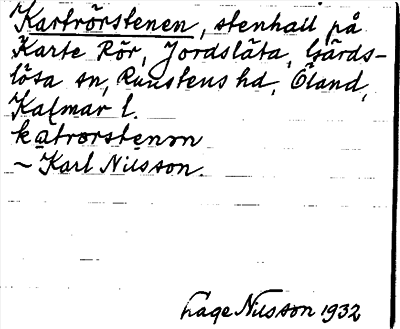 Kartrörstenen, stenhall på
Karte Rör, Jordsläta, Gärds-
lösa sn, Runstens hd, Öland,
Kalmar l.
katrorstenon
~ Karl Nilsson.
Åage Nilsson 1932